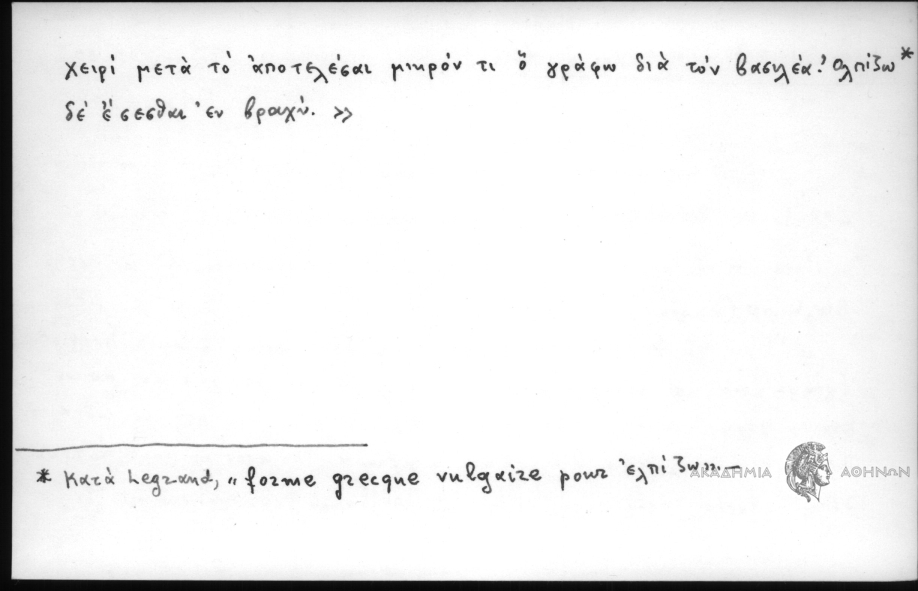 χειρί μετὰ τὸ ἀποτελέσαι μικρόν τι ὅ γράφω διὰ τὸν βασιλέα. Ὀλπίζω*
δέ ἔσεσθαι ἐν βραχύ. »
* Κατὰ Legrand, « forme grecque vulgaire pour ἐλπίζω».–
ΑΚΑΔΗΜΙΑ ΑΘΗΝΩΝ